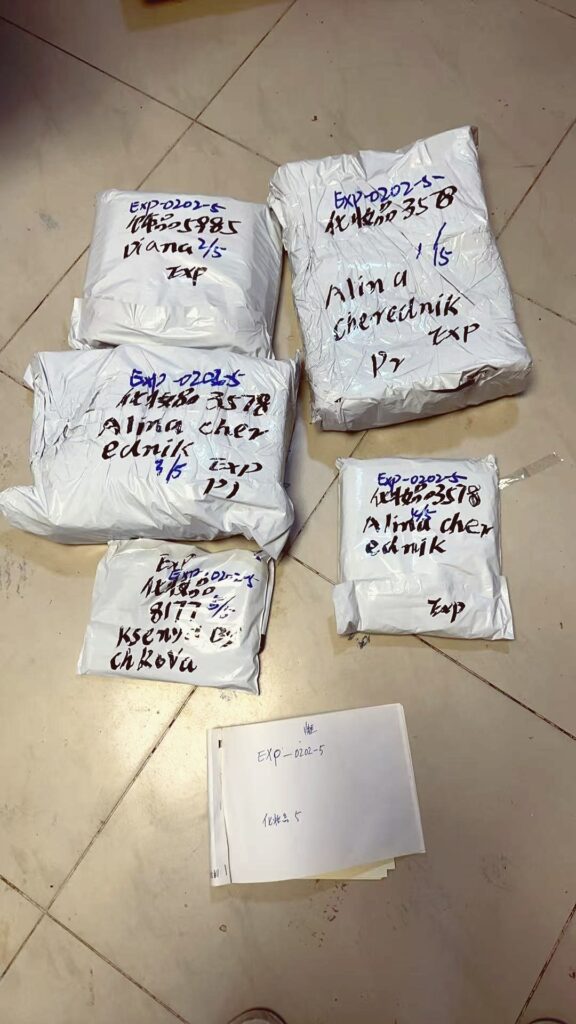 Exp-0202-5
化妆品5985
Diana 2/5
Exp
Exp-0202-5
化妆品3578
1/5
Alina
cherednik
Exp
Pr
Exp-0202-5
化妆品3578
Alina cher
ednik
3/5 Exp
Pr
Exp-0202-5
化妆品3578
Alina cher
ednik
Exp
Exp
Exp-0202-5
化妆品
8177 5/5
Ksenya
chkova
EXP-0202-5
化妆品 5